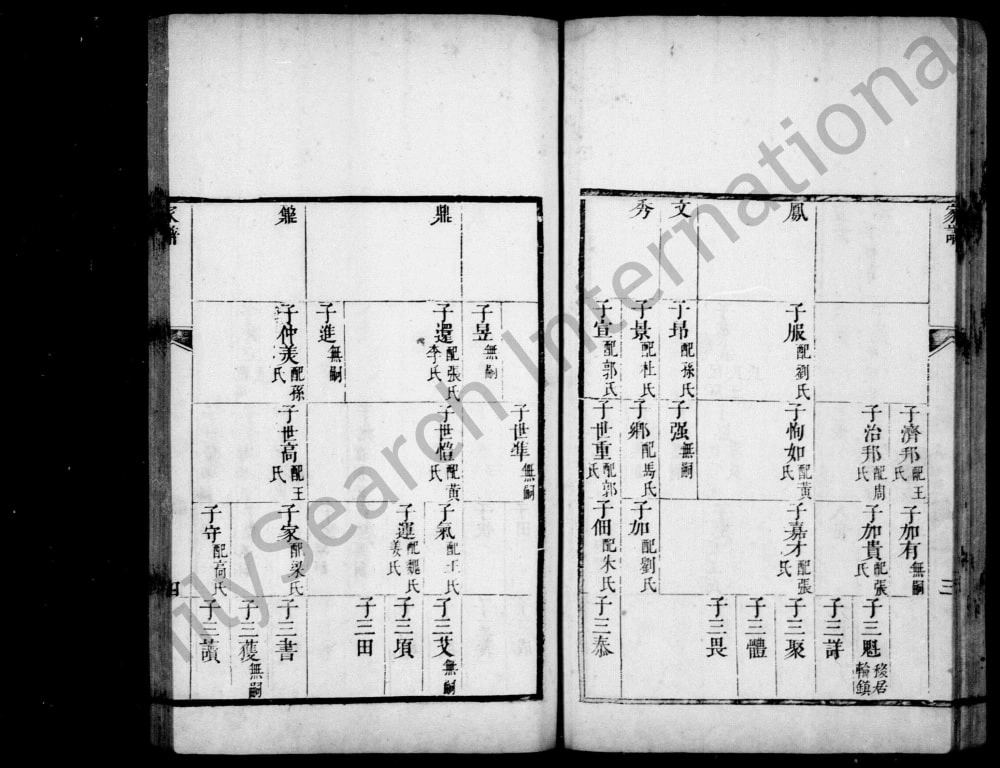 家譜
三
子濟邦配王氏
子加有無嗣
子治邦配周氏
子加貴配張氏
子三魁移居輪鎮
子三詳
鳳
子服配劉氏
子恂如配黃氏
子嘉才配張氏
子三聚
子三體
子三畏
文
子昂配孫氏
子强無嗣
秀
子景配杜氏
子鄉配馬氏
子加配劉氏
子宣配郭氏
子世重配郭氏
子佃配朱氏
子三泰
子世準無嗣
子昱無嗣
鼎
子還配張氏李氏
子世楷配黃氏
子氣配王氏
子三艾無嗣
子運配魏氏姜氏
子三項
子三田
子進無嗣
子仲美配孫氏
子世高配王氏
子家配梁氏
子三書
子三蒦無嗣
子守配高氏
子三讀
家譜
四
FamilySearch International